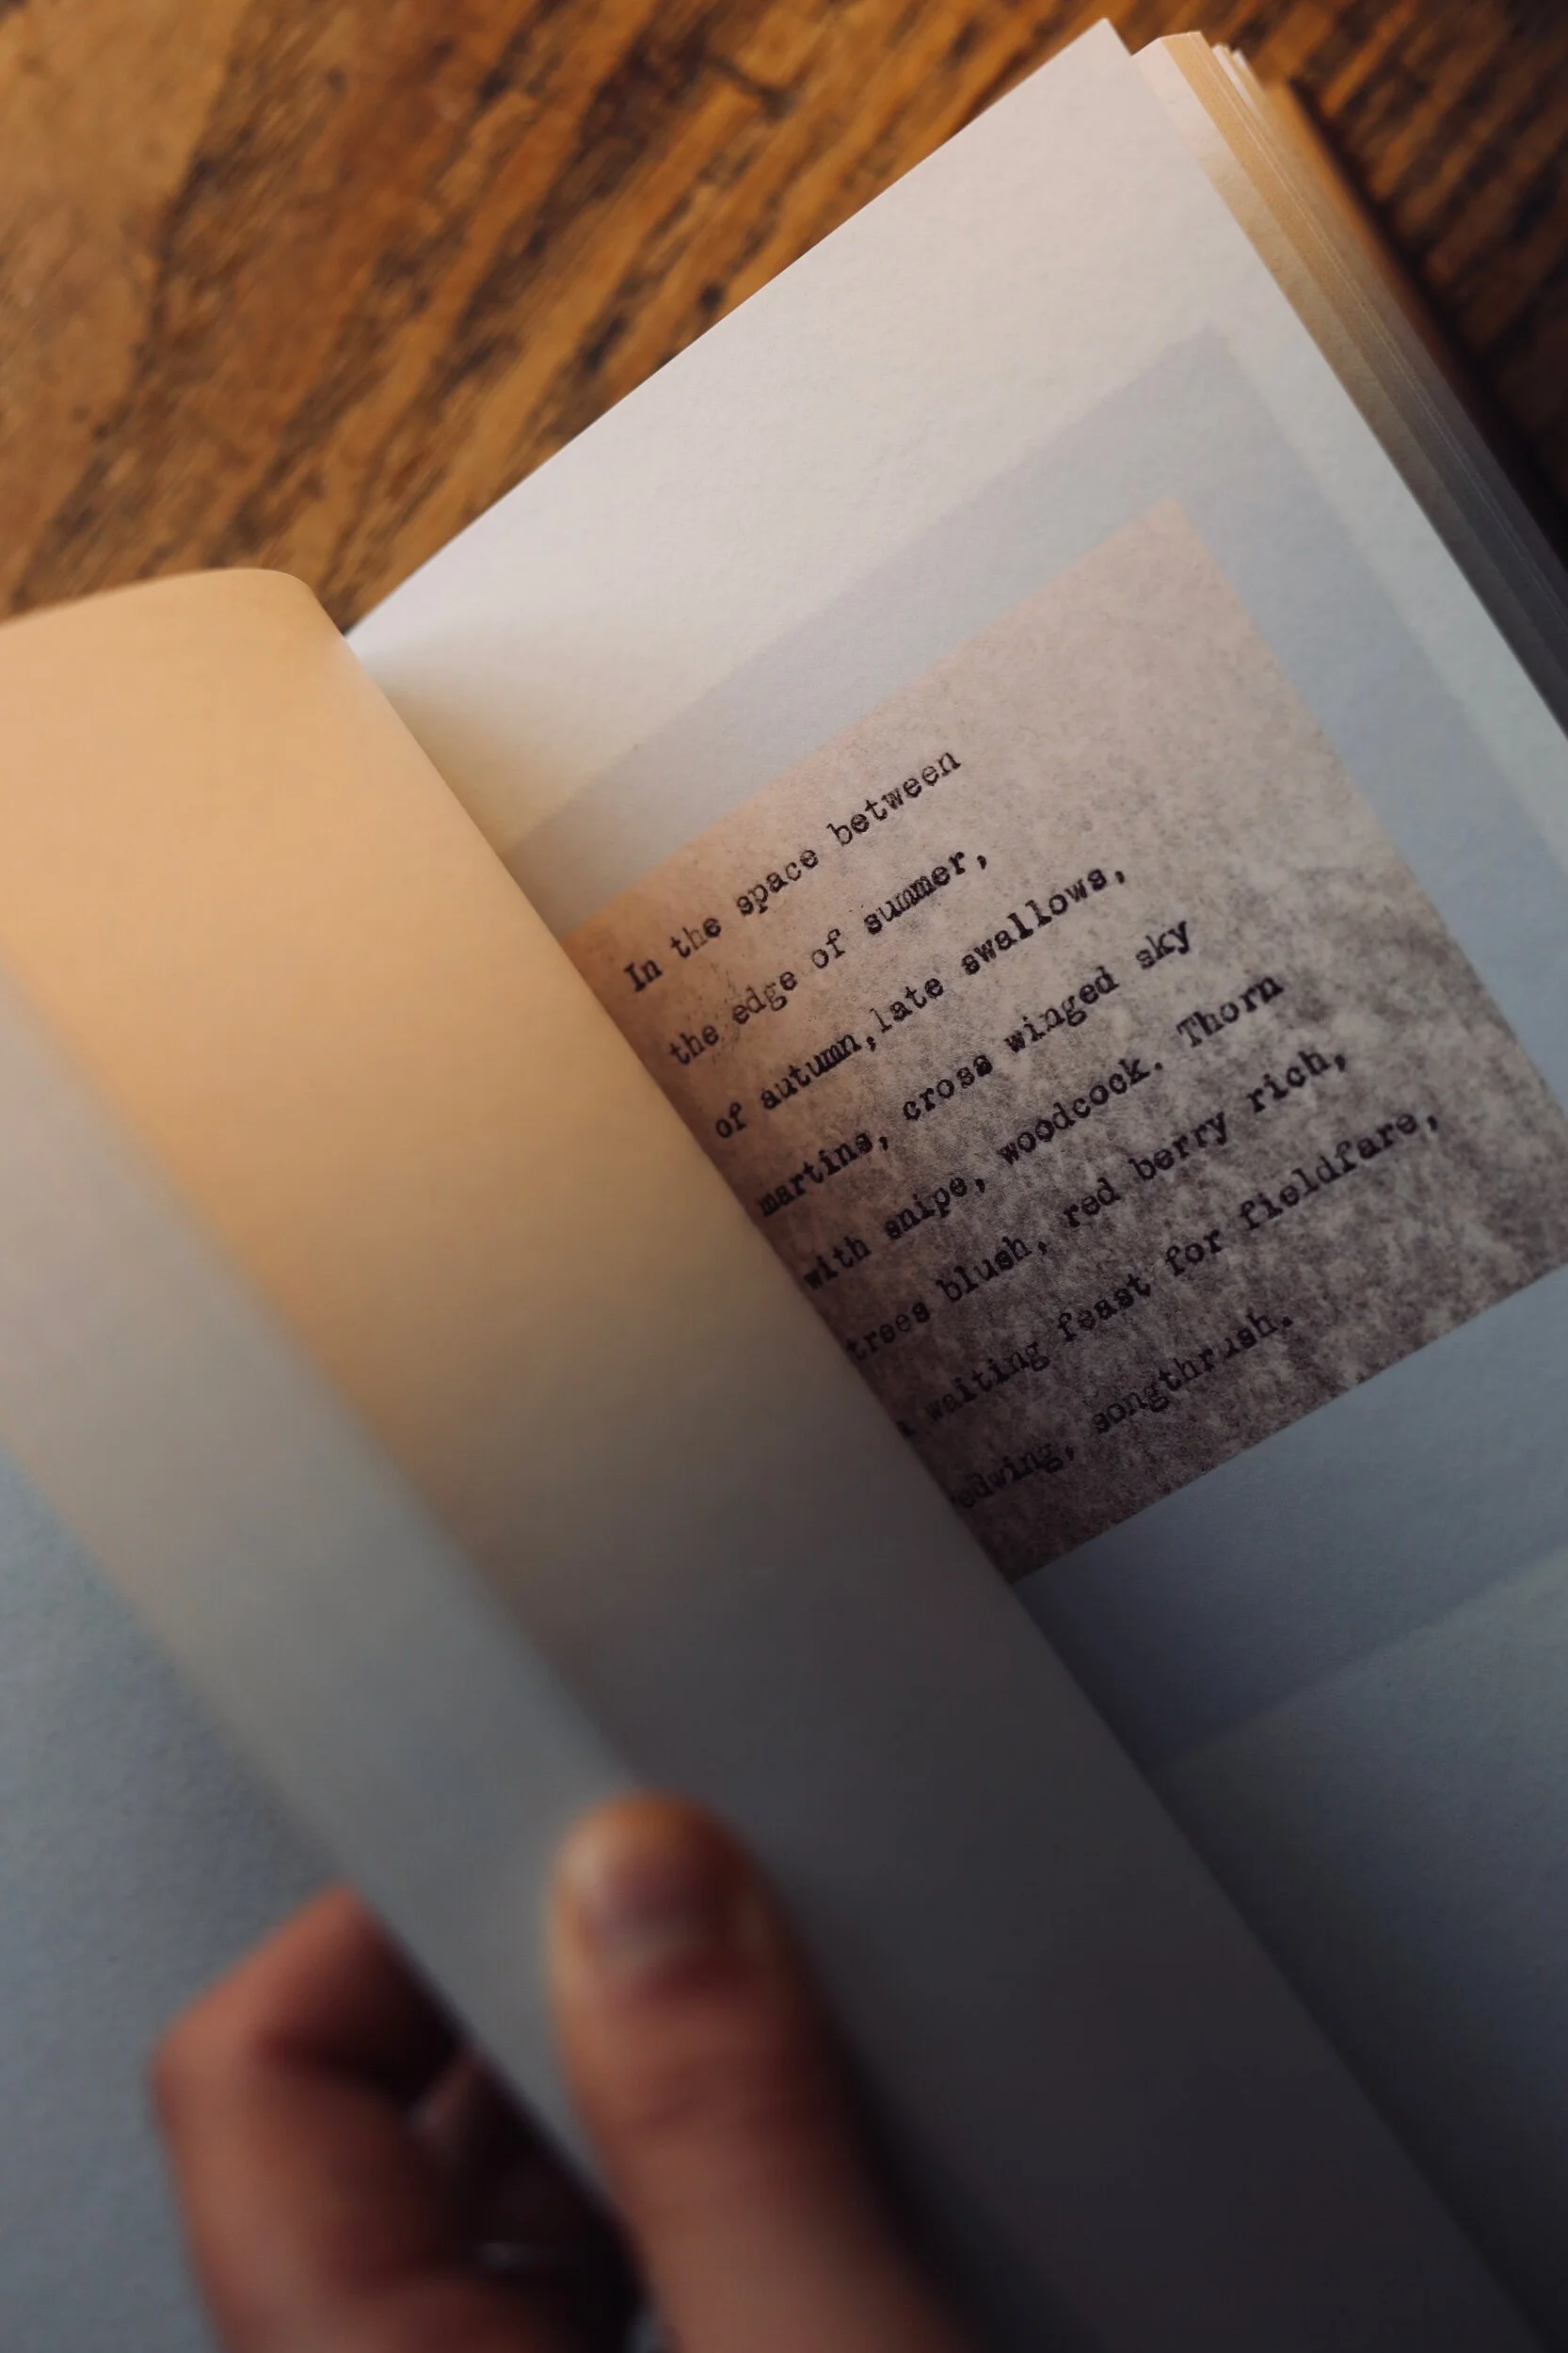 In the space between
the edge of summer,
of autumn,late swallows,
martins, cross winged sky
with snipe, woodcock. Thorn
trees blush, red berry rich,
waiting feast for fieldfare,
songthrush.